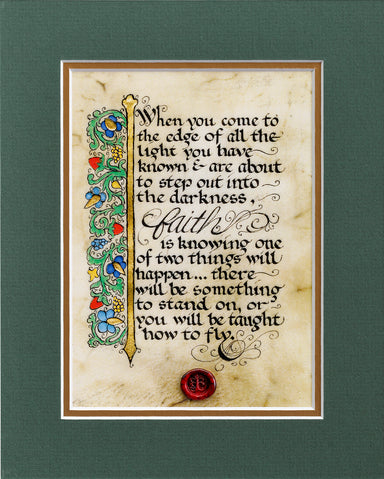 When you come to
the edge of all the
light you have
known & are about
to step out into
the darkness,
faith
is knowing one
of two things will
happen... there
will be something
to stand on, or
you will be taught
how to fly.